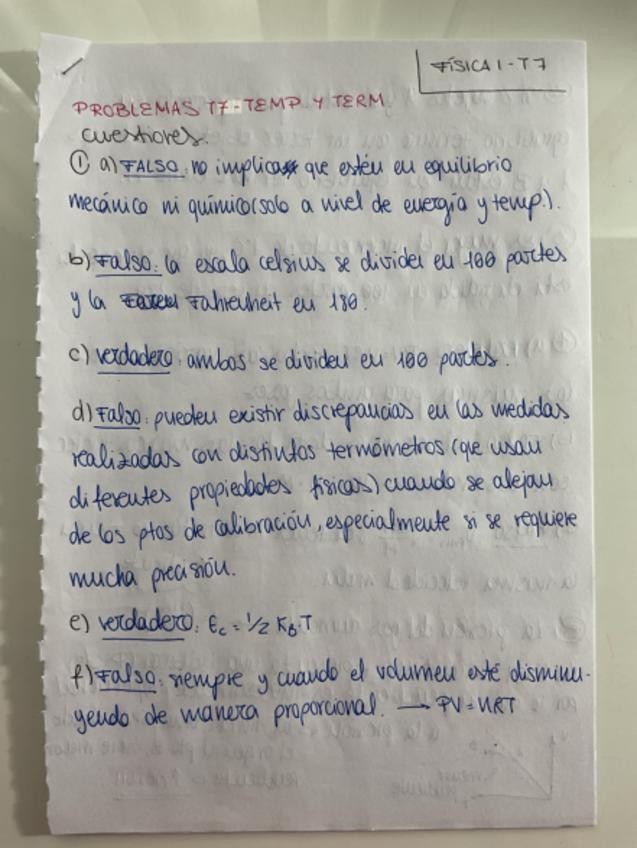 FÍSICA I - T7
PROBLEMAS T7 - TEMP Y TERM
cuestiones.
① a) FALSO: no implica que estén en equilibrio
mecánico ni químico (solo a nivel de energía y temp.).
b) Falso: la escala celsius se divide en 100 partes
y la Fahrenheit en 180.
c) verdadero: ambos se dividen en 100 partes.
d) Falso: pueden existir discrepancias en las medidas
realizadas con distintos termómetros (que usan
diferentes propiedades físicas) cuando se alejan
de los ptos de calibración, especialmente si se requiere
mucha precisión.
e) verdadero: Ec = 1/2 KB·T
f) Falso: siempre y cuando el volumen esté disminu-
yendo de manera proporcional. → PV = nRT